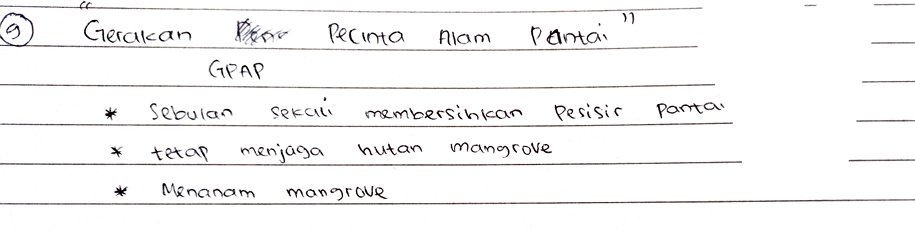 9 "Gerakan Pecinta Alam Pantai"
GPAP
* Sebulan sekali membersihkan Pesisir Pantai
* tetap menjaga hutan mangrove
* Menanam mangrove